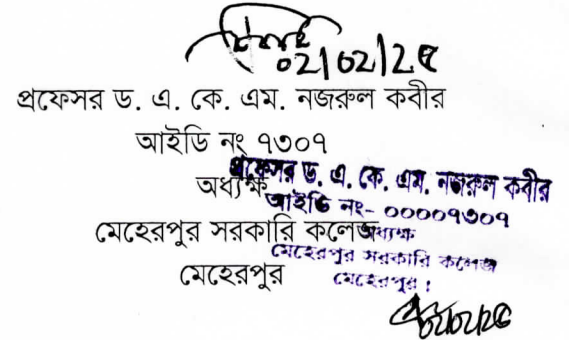 ০২/০২/২৫
প্রফেসর ড. এ. কে. এম. নজরুল কবীর
আইডি নং ৭৩০৭
অধ্যক্ষ
মেহেরপুর সরকারি কলেজ
মেহেরপুর
প্রফেসর ড. এ. কে. এম. নজরুল কবীর
আইডি নং- ০০০০৭৩০৭
অধ্যক্ষ
মেহেরপুর সরকারি কলেজ
মেহেরপুর।
০২/০২/২৫